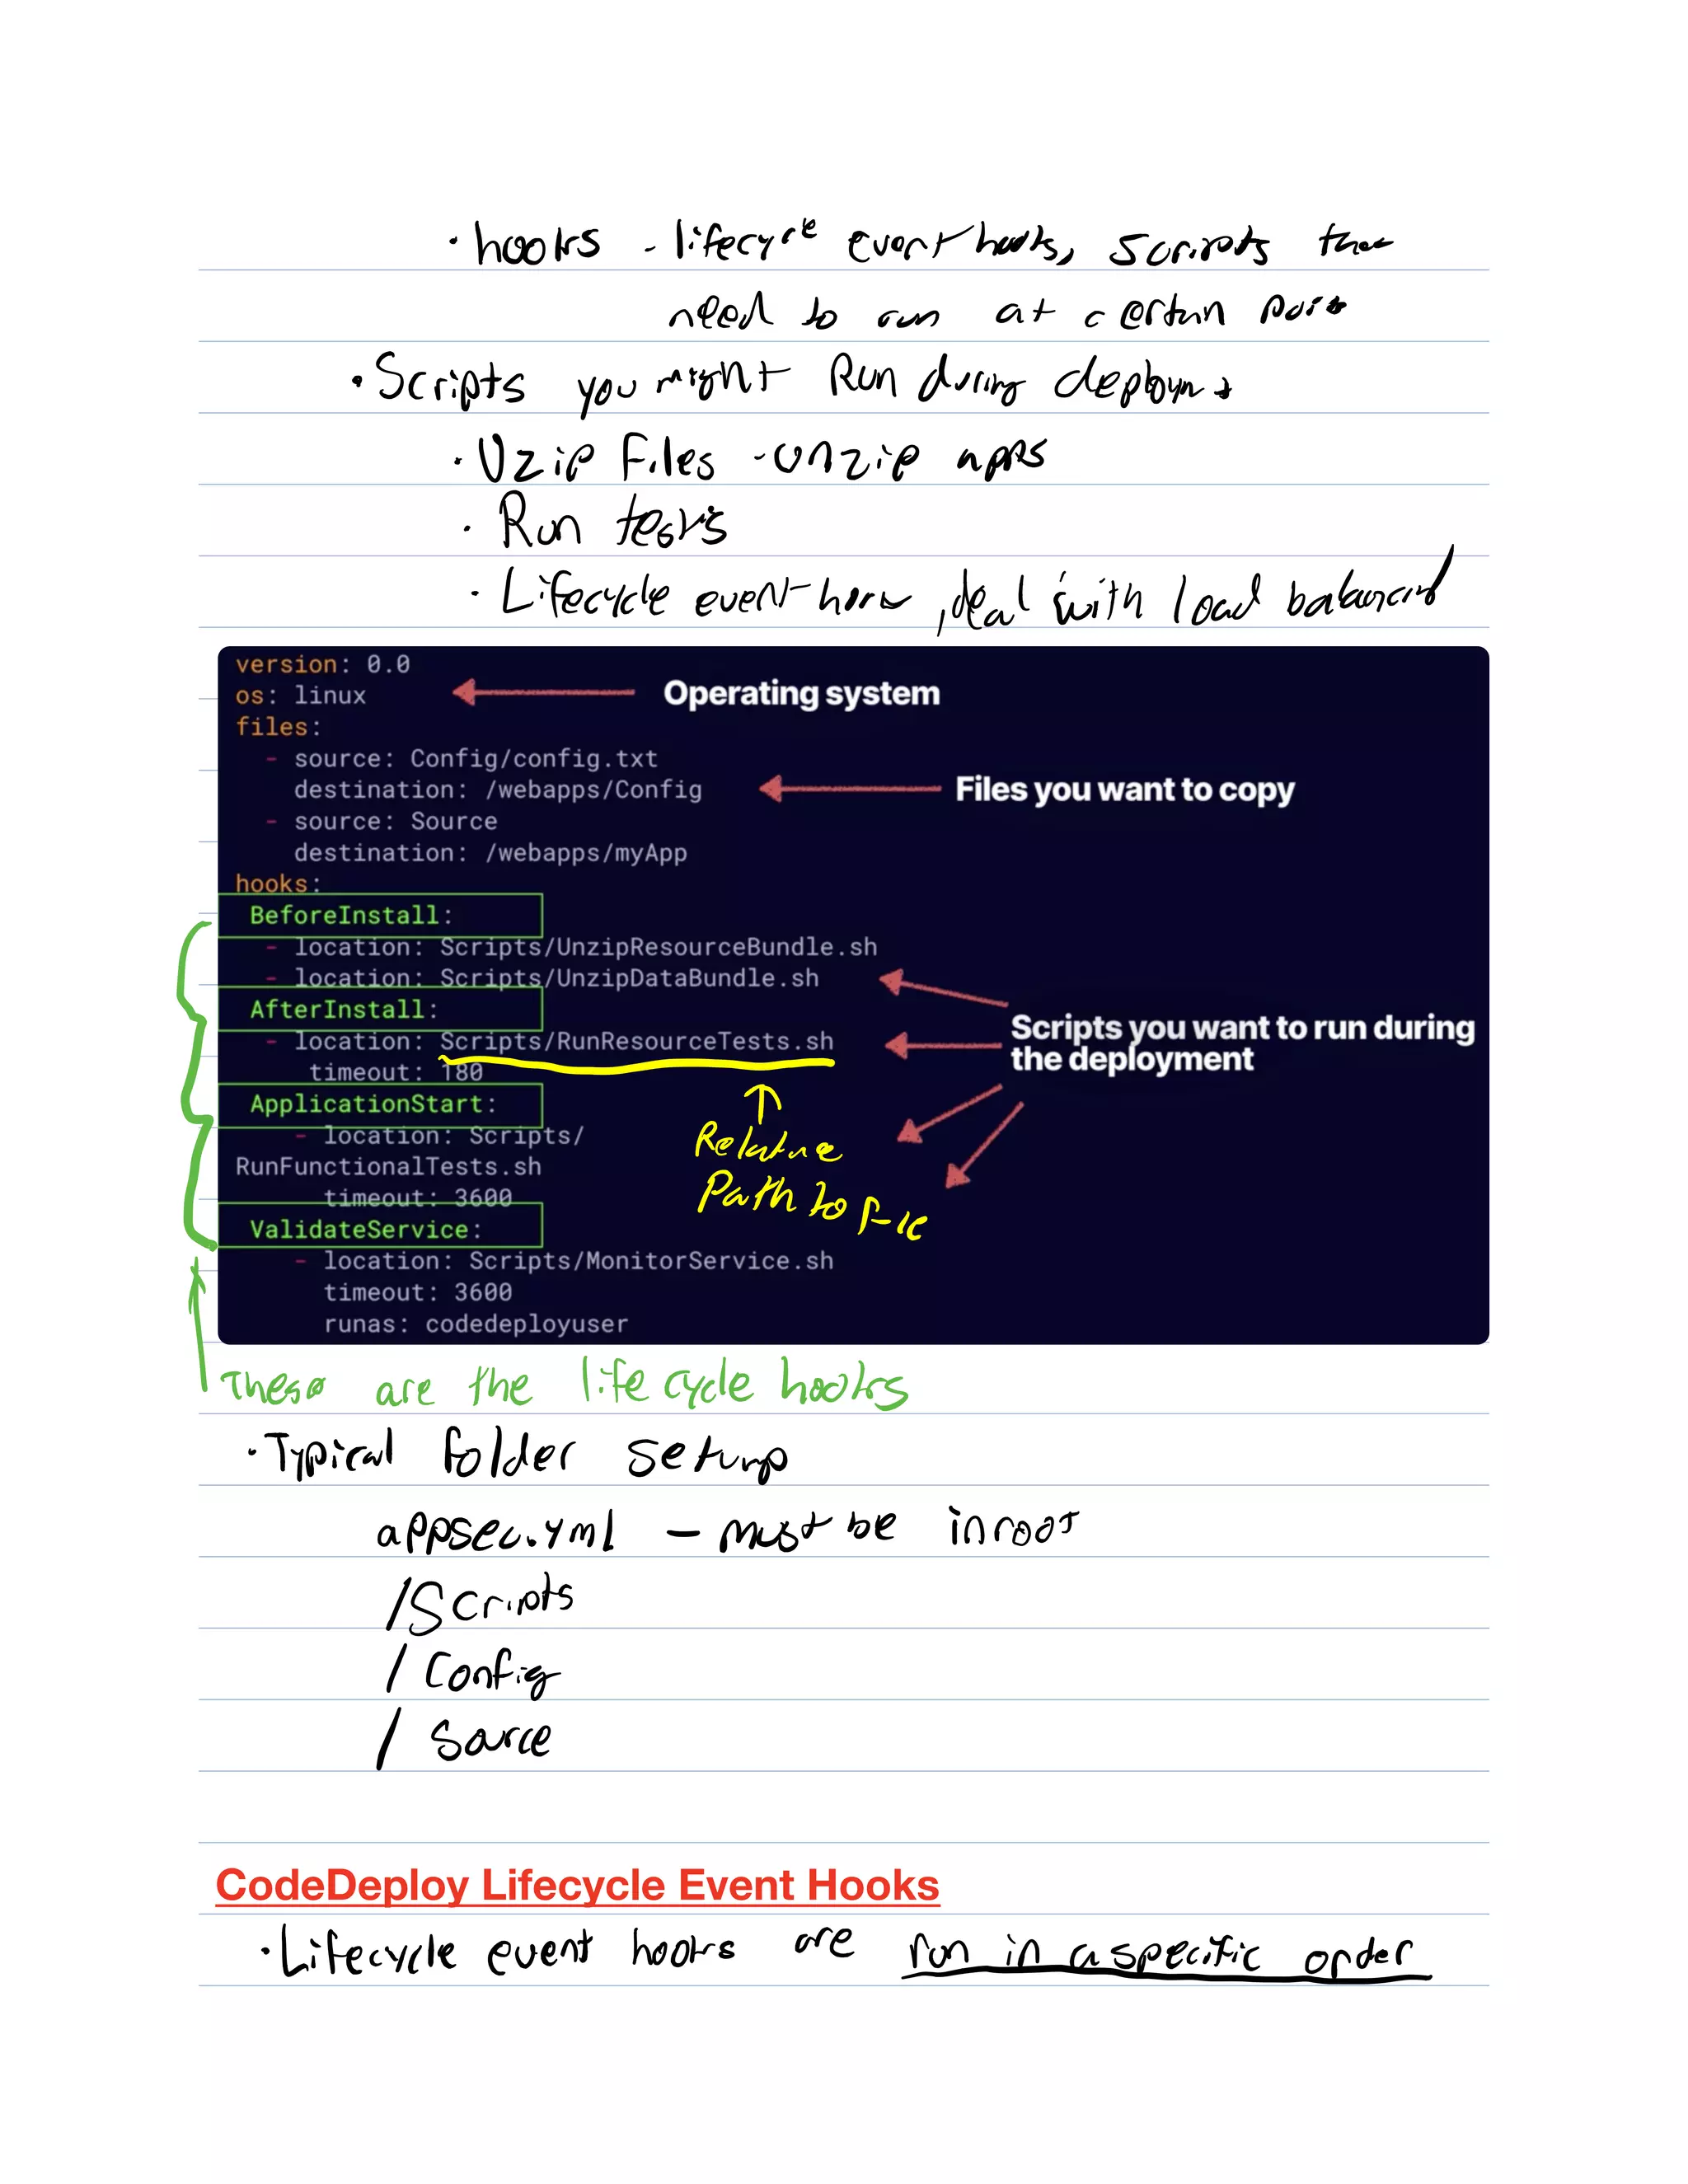 · hooks - lifecycle event hooks, scripts that
need to run at certain
· Scripts you might Run during deploymt
· Uzip Files - unzip apps
· Run tests
· Lifecycle event , deal with load
version: 0.0
os: linux
Operating system
files:
- source: Config/config.txt
destination: /webapps/Config
Files you want to copy
- source: Source
destination: /webapps/myApp
hooks:
BeforeInstall:
- location: Scripts/UnzipResourceBundle.sh
- location: Scripts/UnzipDataBundle.sh
AfterInstall:
- location: Scripts/RunResourceTests.sh
timeout: 180
Scripts you want to run during
the deployment
ApplicationStart:
- location: Scripts/
RunFunctionalTests.sh
timeout: 3600
Relative
Path to file
ValidateService:
- location: Scripts/MonitorService.sh
timeout: 3600
runas: codedeployuser
These are the life cycle hooks
· Typical folder setup
appsec.yml - must be in root
/Scripts
/ Config
/ Source
CodeDeploy Lifecycle Event Hooks
· Lifecycle event hooks are run in a specific order